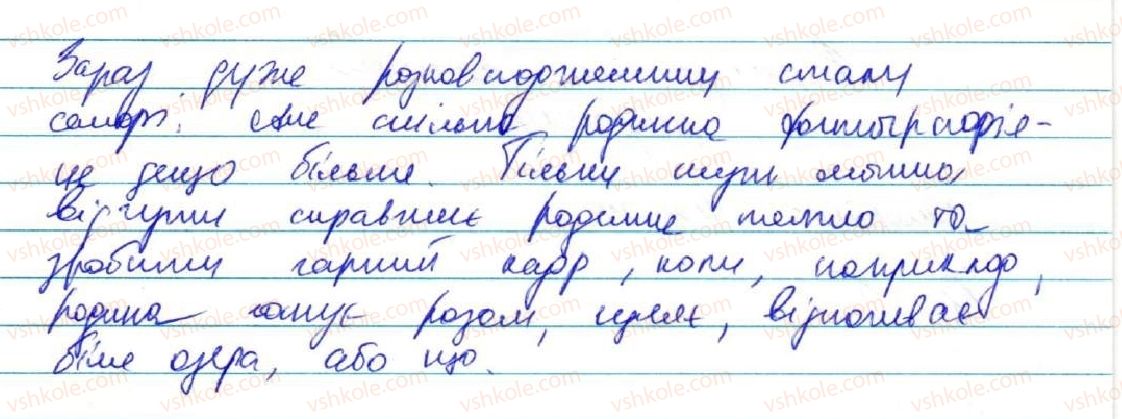 Зараз дуже розповсюдженими стали
селфі. Але спільна родинна фотографія -
це дещо більше. Тільки тут можна
відчути справжнє родинне тепло та
зробити гарний кадр, коли, наприклад,
родина готує разом, гуляє, відпочиває
біля озера, або що.